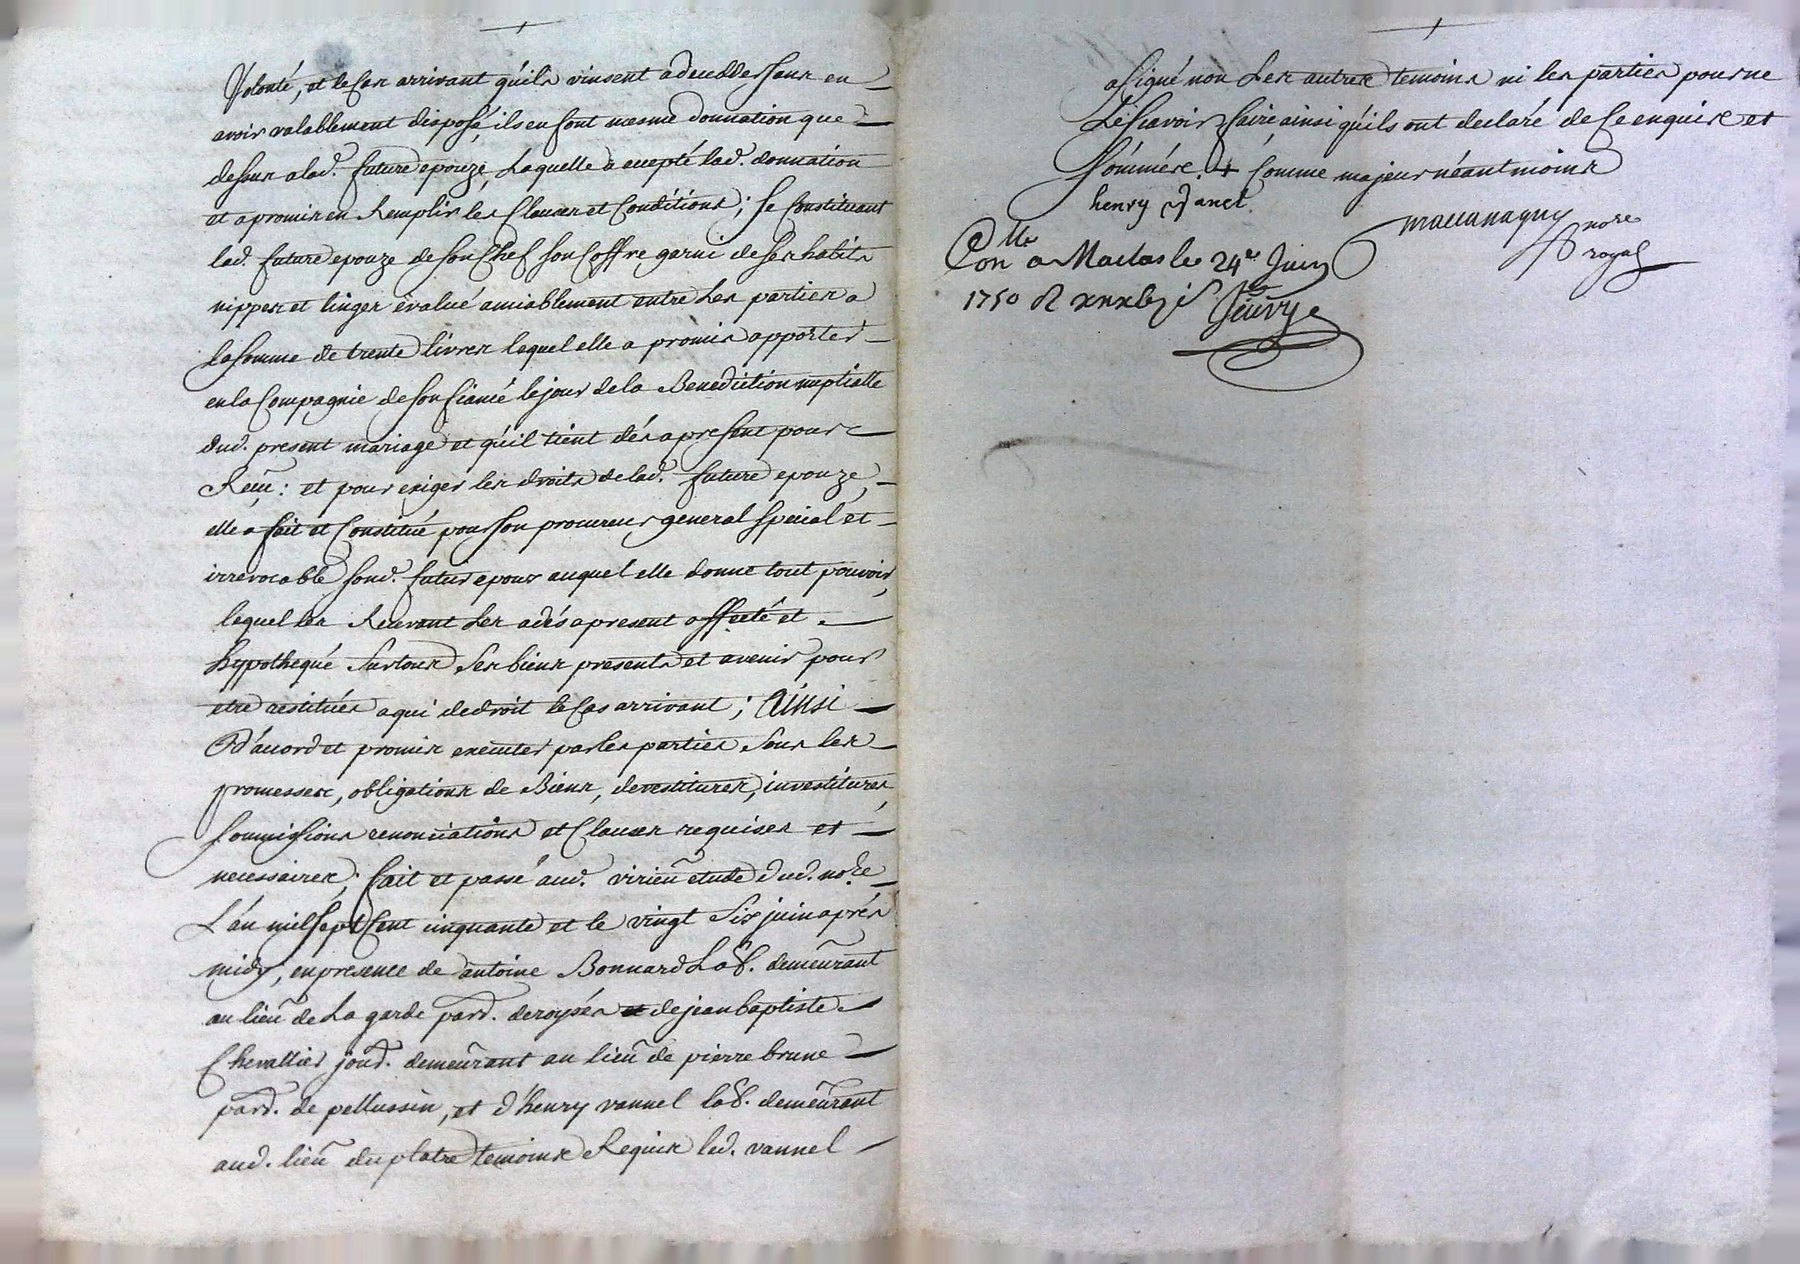 Volonté, et le Cas arrivant quils vinsent a deceddes sans en
avoir valablement disposé, ils en font mesme donnation que
dessus a lad. future epouze, Laquelle a accepté lad. donnation
et a promis en Remplir les Clauses et Conditions; se Constituant
lad. future epouze de son Chef son Coffre garni de ses habits
nippes et linges évalué amiablement entre Les parties a
la somme de trente livres lequel elle a promis apporter
en la Compagnie de son fiancé le jour de la Benediction nuptialle
dud. present mariage et qu'il tient dés a present pour
Reçu: et pour exiger les droits de lad. future epouze,
elle a fait et Constitué pour son procureur general special et
irrevocable sond. futur epoux auquel elle donne tout pouvoir,
lequel les Recevant Les a dés a present affecté et
hypothequé sur tous ses biens presents et avenir pour
etre restitués a qui de droit le Cas arrivant; Ainsi
D'accord et promis executer par les parties sous les
promesses, obligations de Biens, devestitures, investitures,
soumissions renonciations et Clauses requises et
necessaires; fait et passé aud. virieu etude dud. nore
L'an mil sept Cent cinquante et le vingt six juin aprés
midy, en presence de antoine Bonnard Lab. demeurant
au lieu de La garde parr. de royséz et de jean baptiste
Chevallier jourd. demeurant au lieu de pierre brune
parr. de pellussin, et d'henry vannel lab. demeurant
aud. lieu du platre temoins Requis led. vannel
a signé non Les autres temoins ni les parties pour ne
Le sçavoir faire ainsi qu'ils ont declaré de Ce enquis et
sommés. + Comme majeur néantmoins
henry vanel
maccanaguy nore
royal
Con lle a Maclas le 24e Juin
1750 R